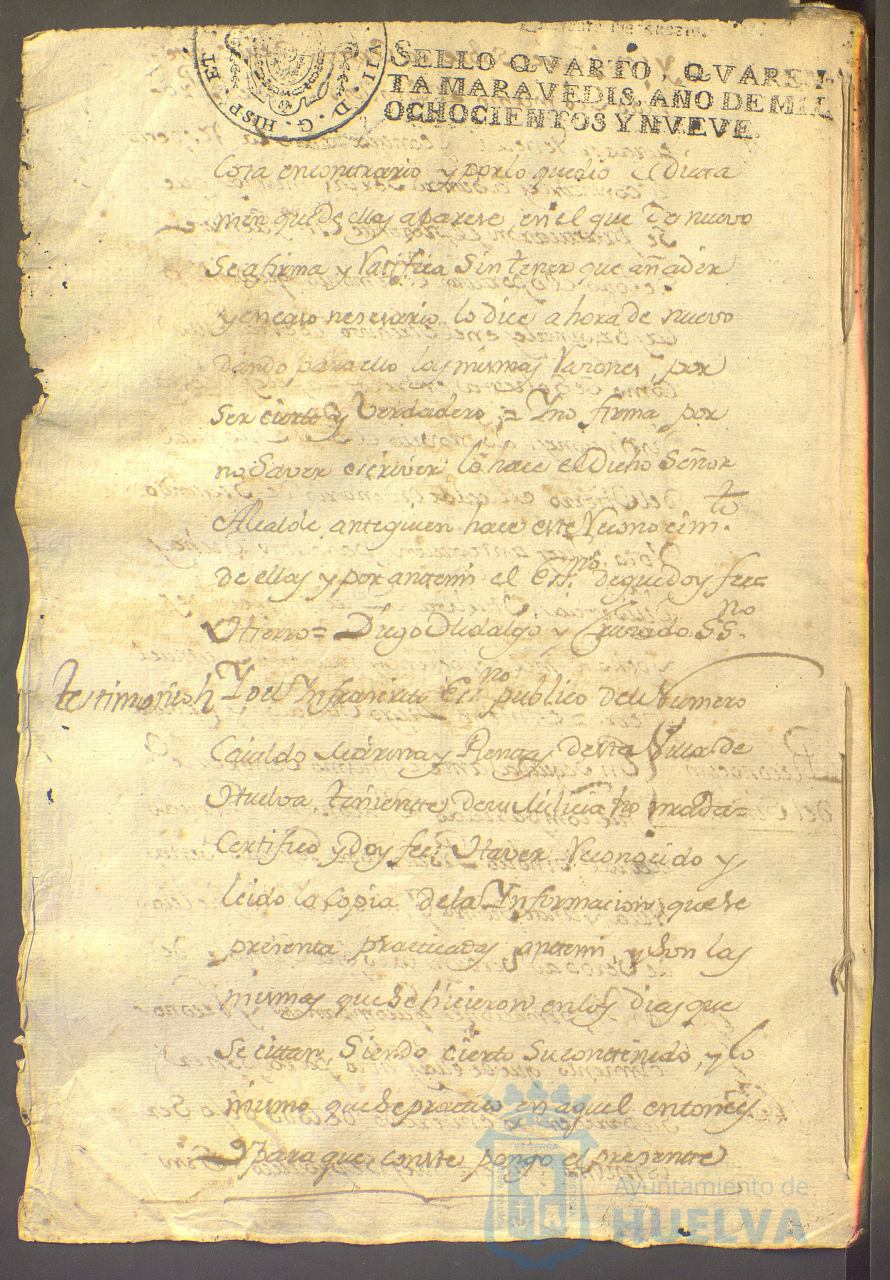 VII. D. G. HISP. ET
SELLO QVARTO, QVAREN-
TA MARAVEDIS, AÑO DE MIL
OCHOCIENTOS Y NVEVE.
Cosa encontrario y porlo quedio el dicta
men que de ellas aparese en el que de nuevo
Se afirma y Ratifica Sin tener que añadir
y encaso nesesario lo dice ahora de nuevo
dando para ello las mismas Rasones, por
Ser cierto y Verdadero, = Y no firma por
no Saver escriver lo hace el Dicho Señor
Alcalde antequien hace este Reconocim.to
de ellas y por antemi el Ess.no dequedoy fee=
Hierro = Diego Hidalgo y Cruzado. SS.no
Testimonio Yo el Infrascrito Es.no publico del Numero
Cavaldo Marina y Rentas desta Villa de
Huelva, teniente de su Milicia
Certifico y doy fee, Haver Reconosido y
leido la Copia de la Ynformacion, quese
presenta practicadas antemi, y Son las
mismas que Se hicieron enlos dias que
Se citan, Siendo cierto Su contenido, y lo
mismo que Se practico en aquel entonces
Y para que conste pongo el presente
Ayuntamiento de
HUELVA